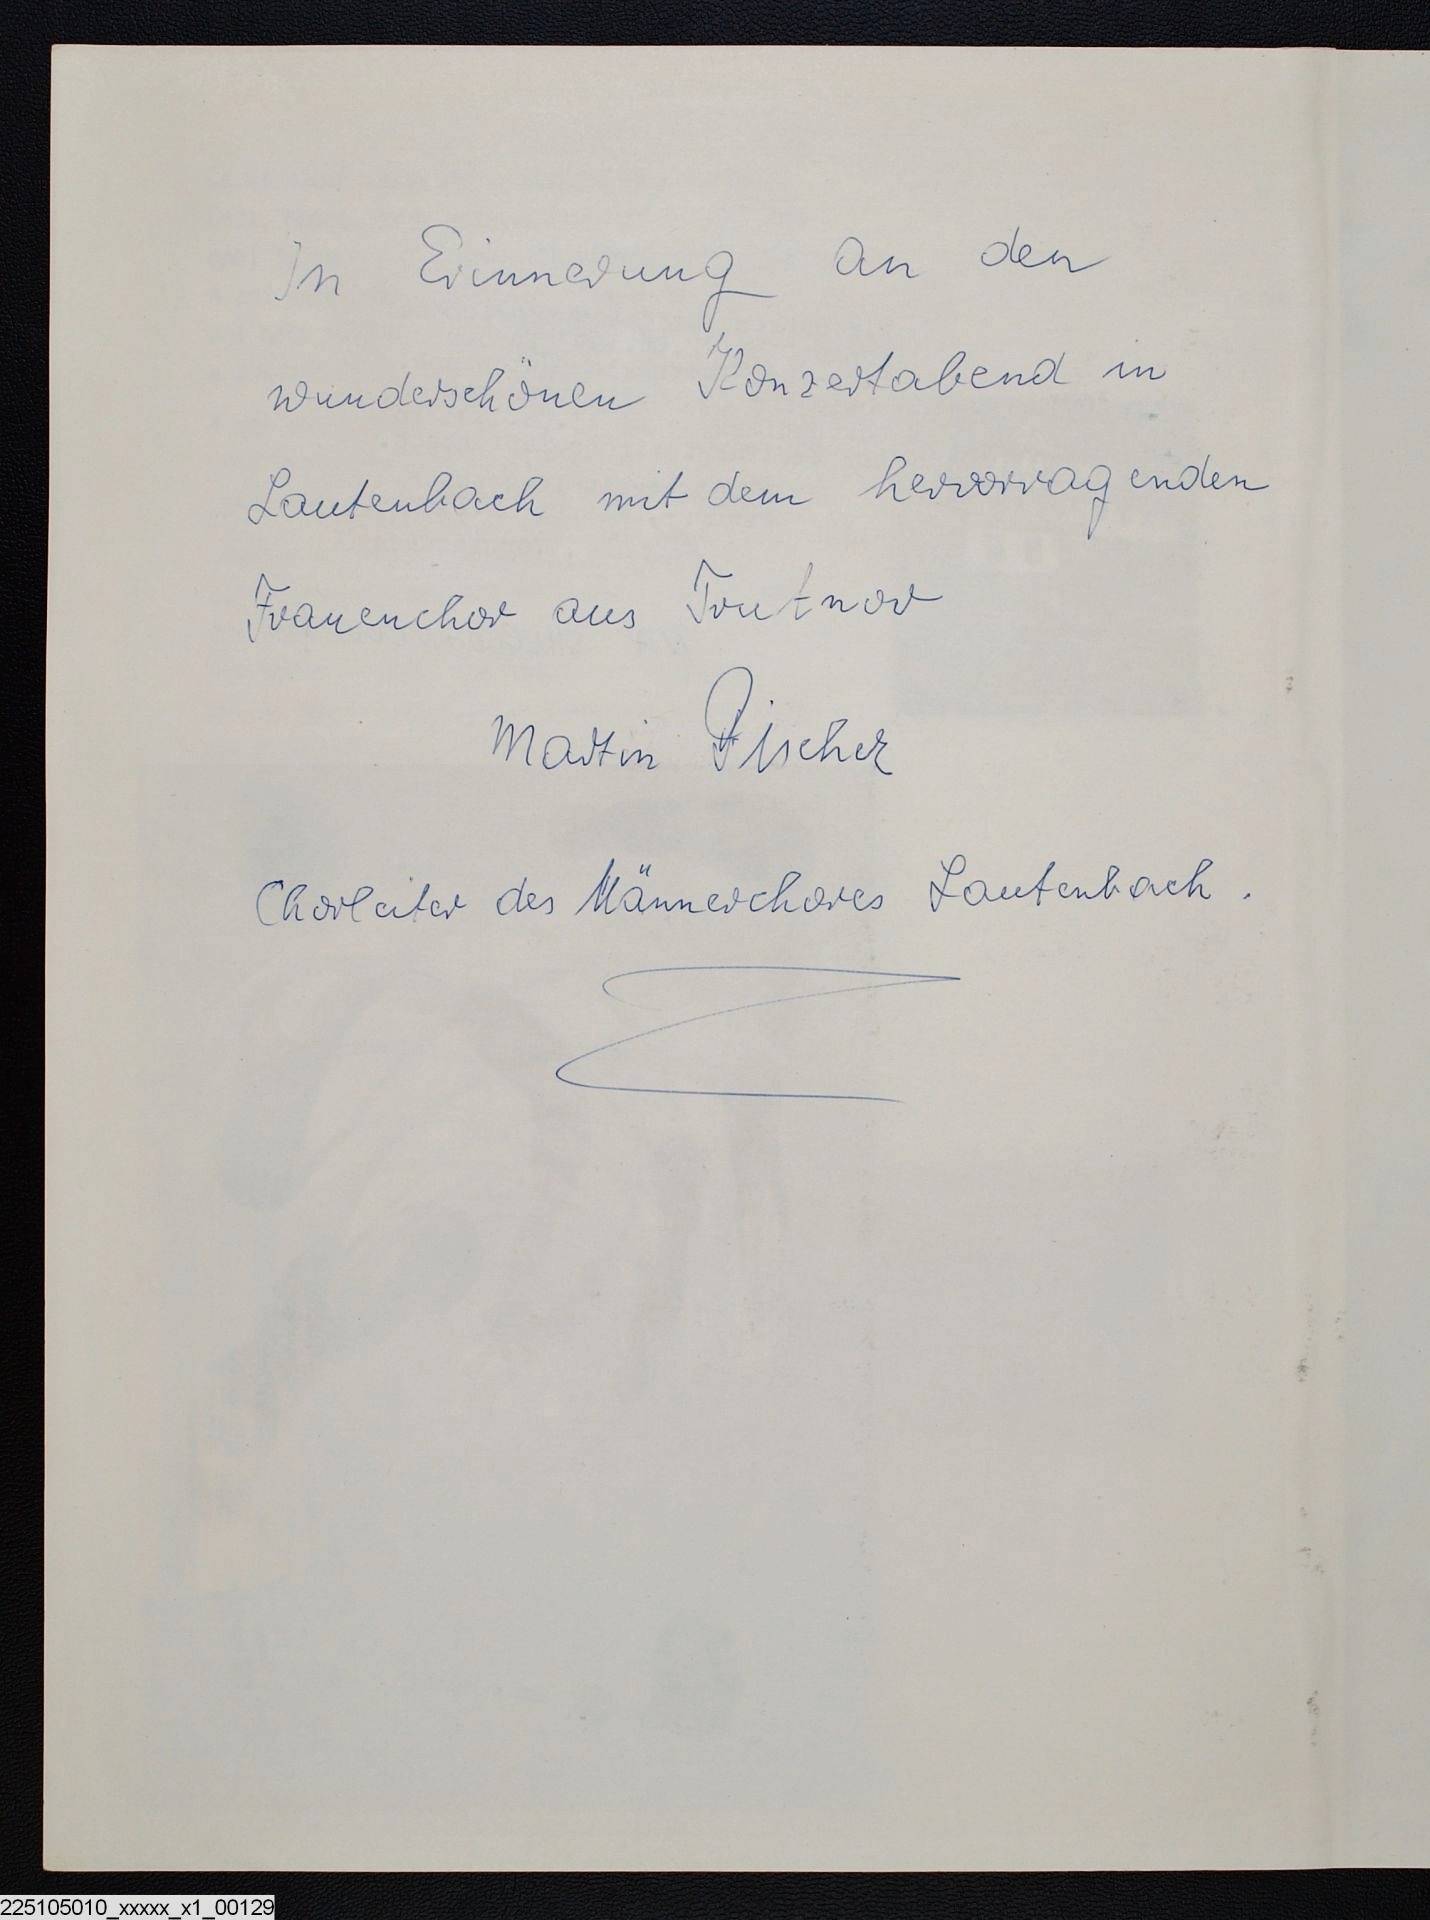 In Erinnerung an den
wunderschönen Konzertabend in
Lautenbach mit dem hervorragenden
Frauenchor aus Trutnov
Martin Fischer
Chorleiter des Männerchores Lautenbach.
225105010_xxxxx_x1_00129